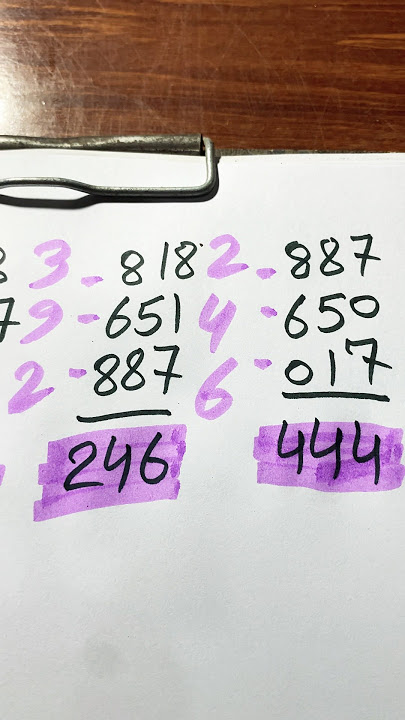 8 3 - 818 2 - 887
7 9 - 651 4 - 650
2 - 887 6 - 017
246 444